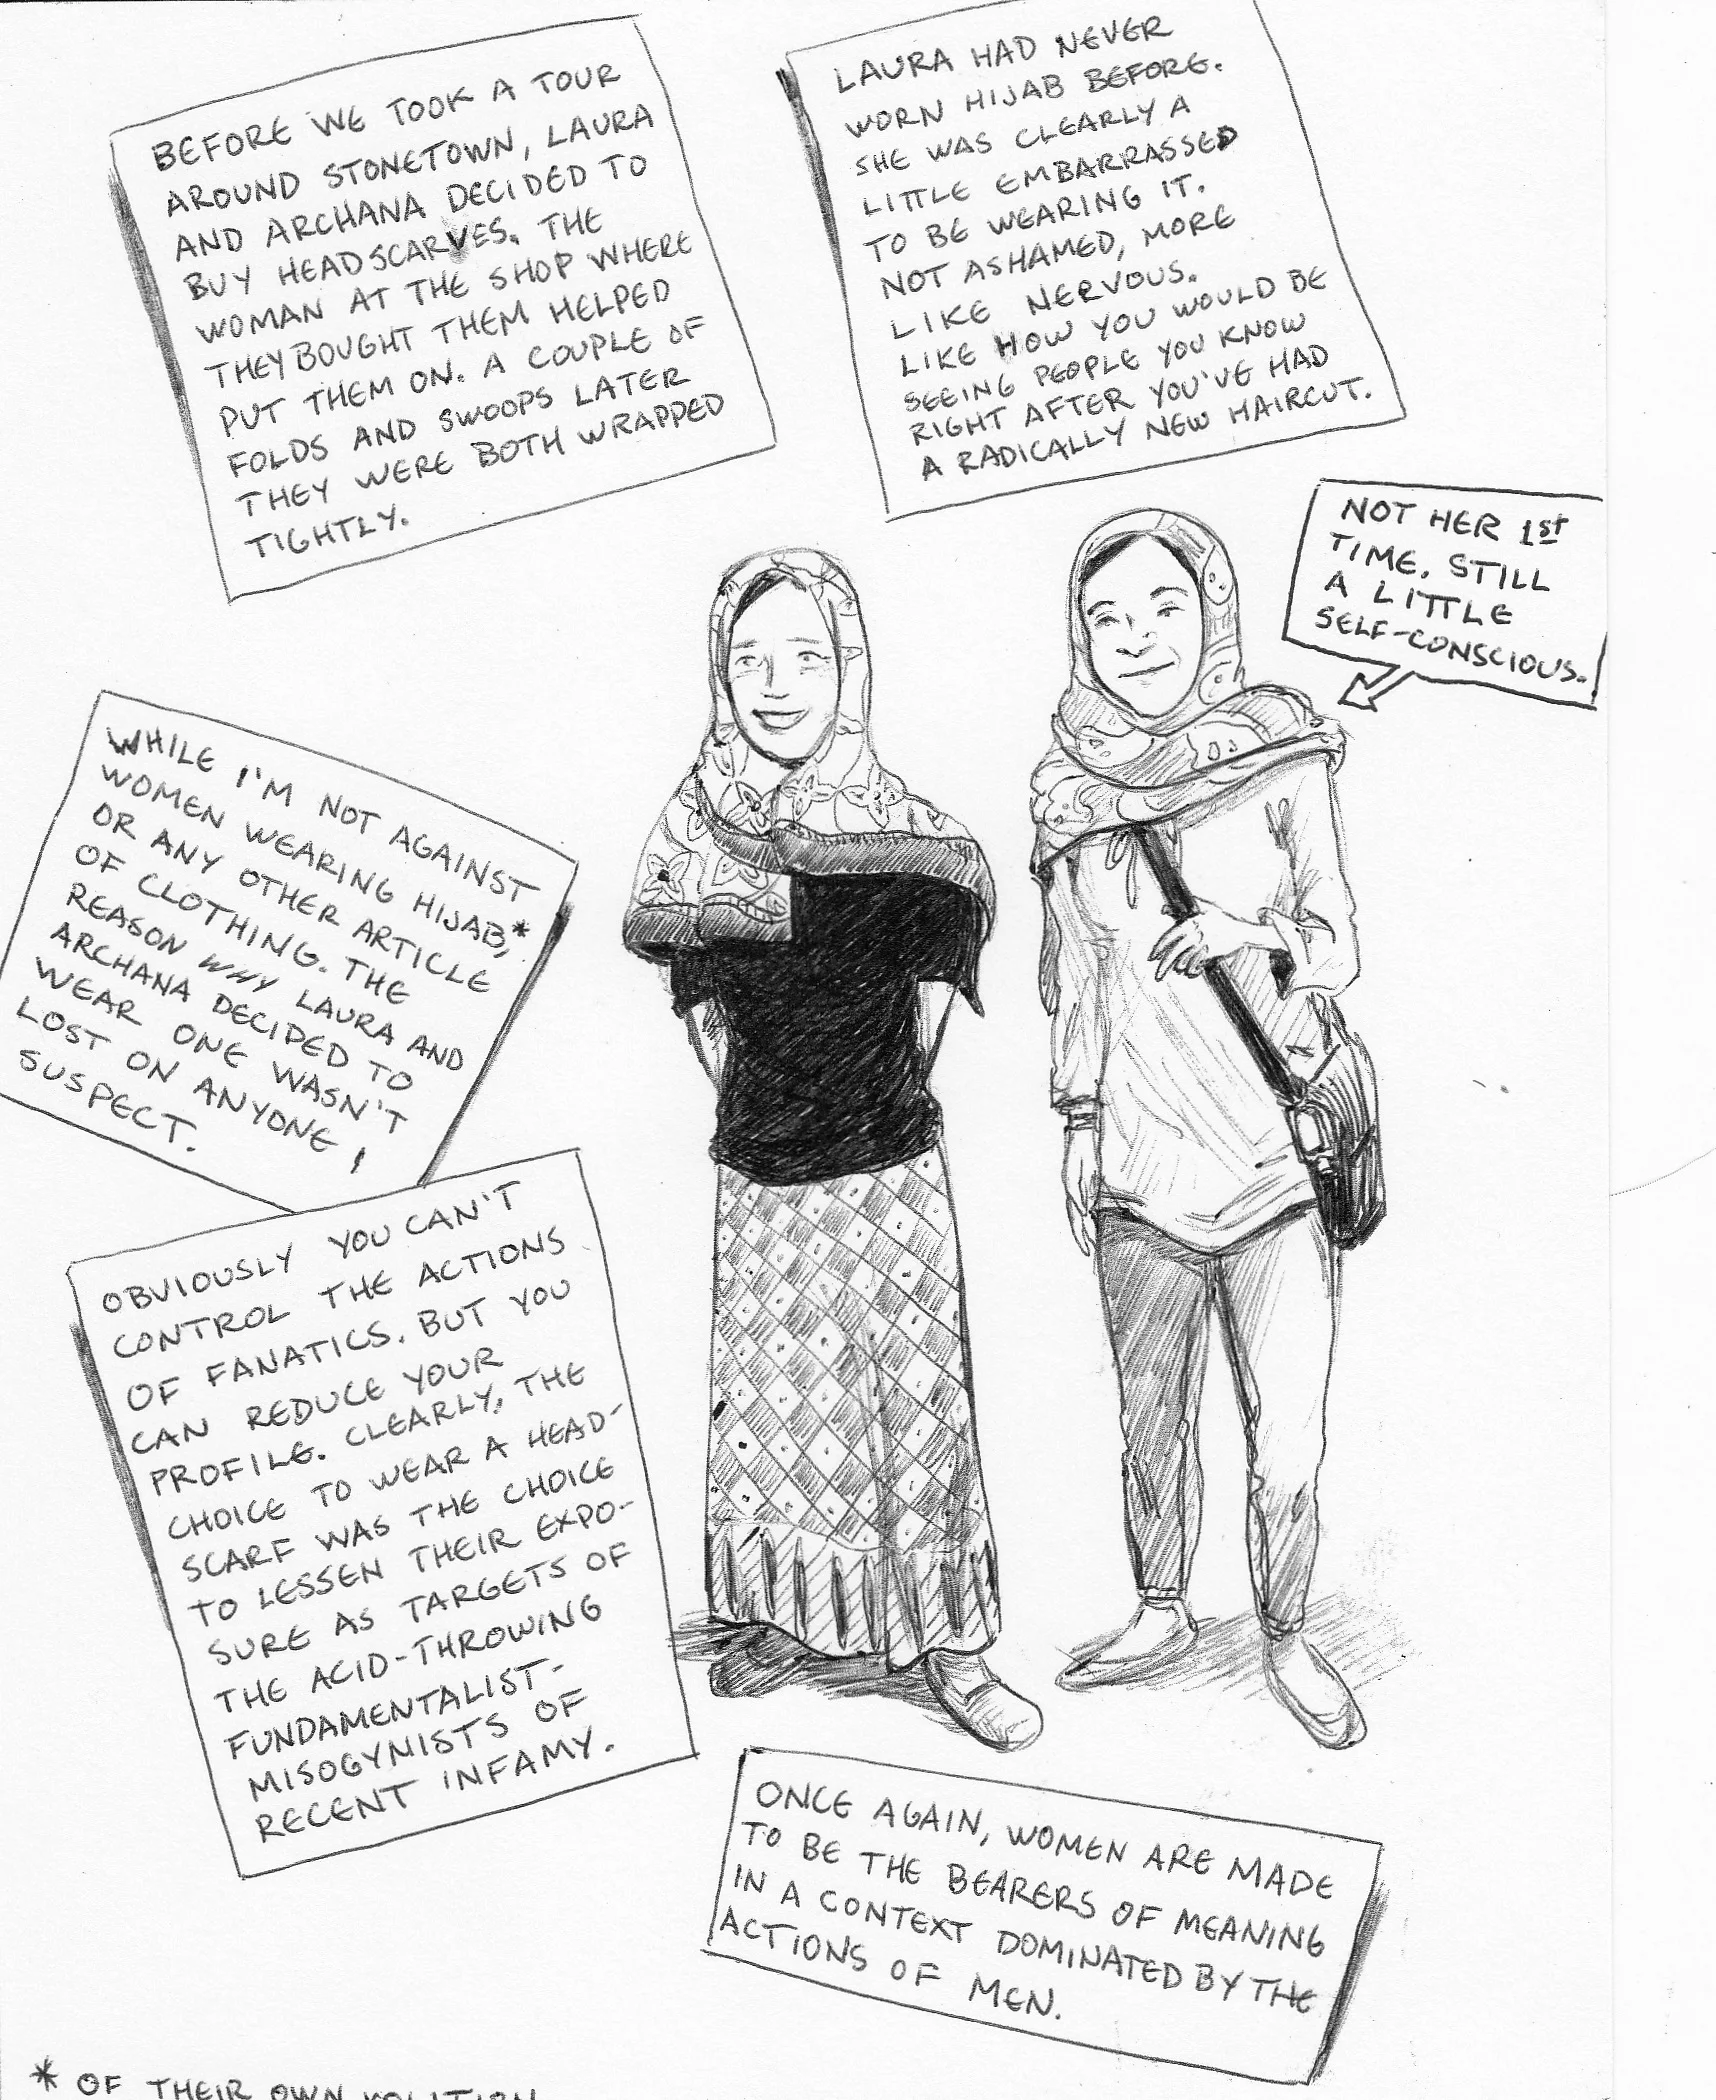 BEFORE WE TOOK A TOUR
AROUND STONETOWN, LAURA
AND ARCHANA DECIDED TO
BUY HEADSCARVES. THE
WOMAN AT THE SHOP WHERE
THEY BOUGHT THEM HELPED
PUT THEM ON. A COUPLE OF
FOLDS AND SWOOPS LATER
THEY WERE BOTH WRAPPED
TIGHTLY.
LAURA HAD NEVER
WORN HIJAB BEFORE.
SHE WAS CLEARLY A
LITTLE EMBARRASSED
TO BE WEARING IT.
NOT ASHAMED, MORE
LIKE NERVOUS.
LIKE HOW YOU WOULD BE
SEEING PEOPLE YOU KNOW
RIGHT AFTER YOU'VE HAD
A RADICALLY NEW HAIRCUT.
NOT HER 1st
TIME. STILL
A LITTLE
SELF-CONSCIOUS.
WHILE I'M NOT AGAINST
WOMEN WEARING HIJAB,*
OR ANY OTHER ARTICLE
OF CLOTHING. THE
REASON WHY LAURA AND
ARCHANA DECIDED TO
WEAR ONE WASN'T
LOST ON ANYONE,
SUSPECT.
OBVIOUSLY YOU CAN'T
CONTROL THE ACTIONS
OF FANATICS. BUT YOU
CAN REDUCE YOUR
PROFILE. CLEARLY, THE
CHOICE TO WEAR A HEAD-
SCARF WAS THE CHOICE
TO LESSEN THEIR EXPO-
SURE AS TARGETS OF
THE ACID-THROWING
FUNDAMENTALIST-
MISOGYNISTS OF
RECENT INFAMY.
ONCE AGAIN, WOMEN ARE MADE
TO BE THE BEARERS OF MEANING
IN A CONTEXT DOMINATED BY THE
ACTIONS OF MEN.
* OF THEIR OWN VOLITION